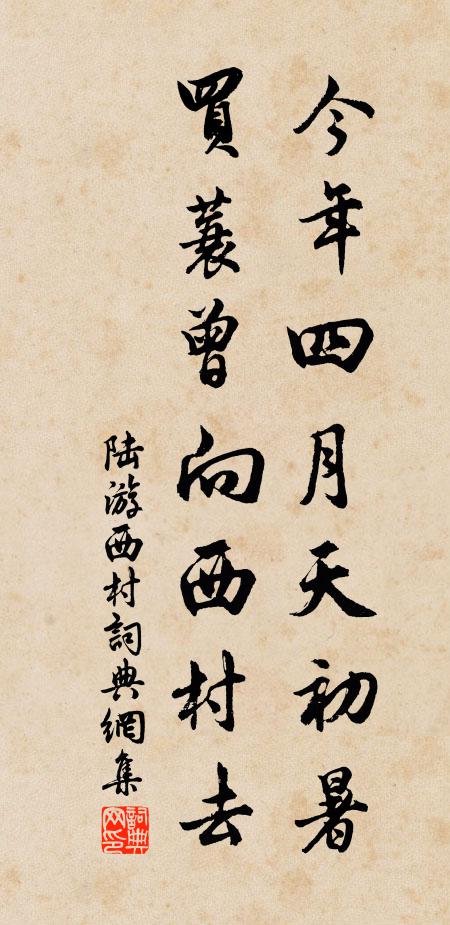 今年四月天初暑
買蓑曾向西村去
陆游西村詞典網集
詞典網印